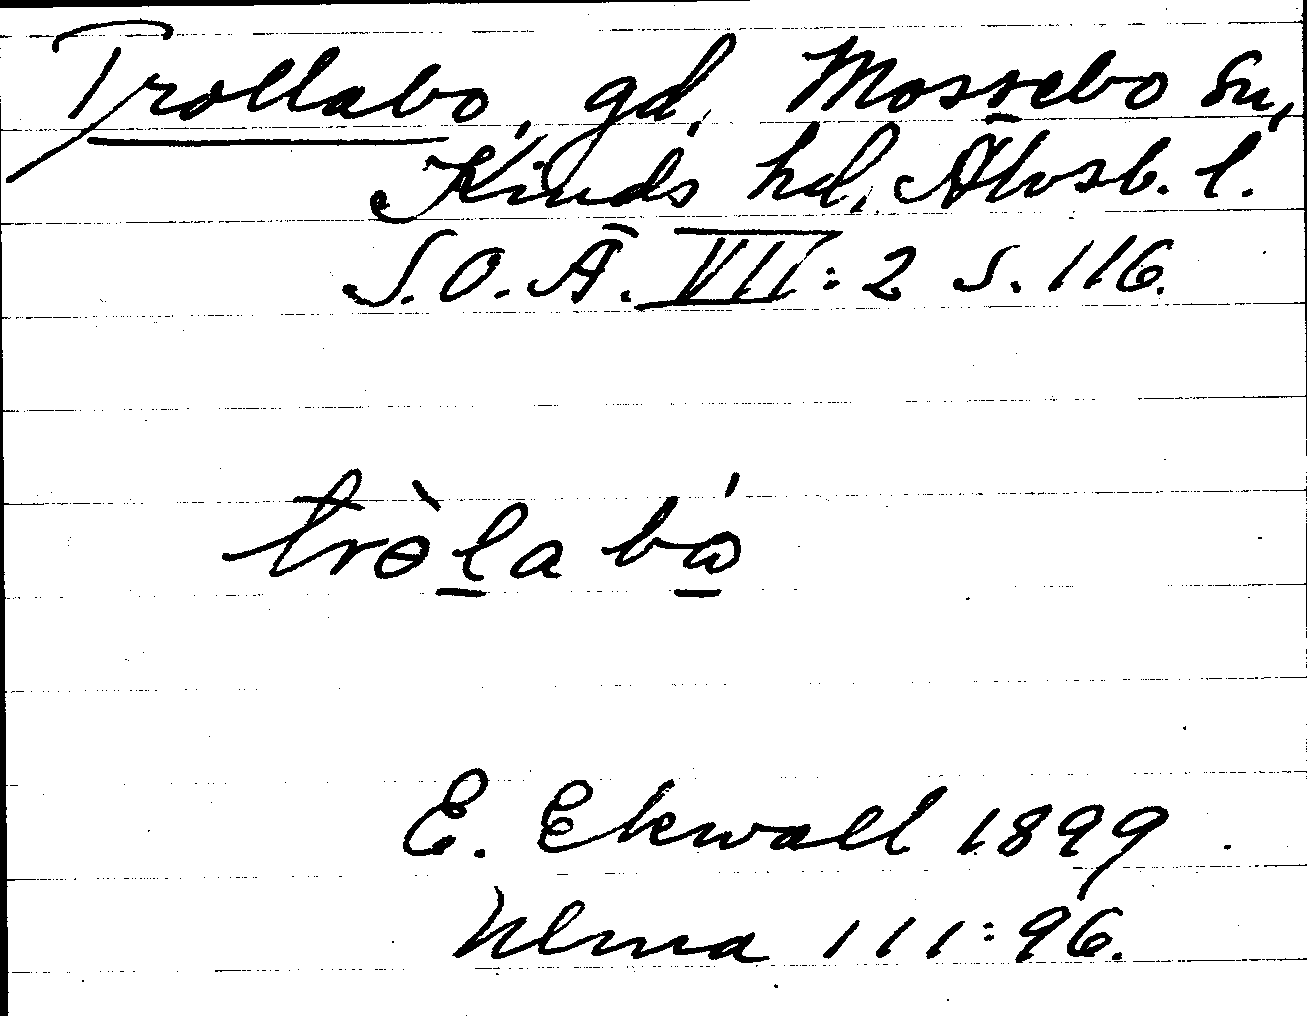 Trollabo, gd, Mossebo sn,
Kinds hd, Älvsb. l.
S.O.Ä. VII:2 s. 116.
tròlabó
E. Ekwall 1899
Ulma 111:96.